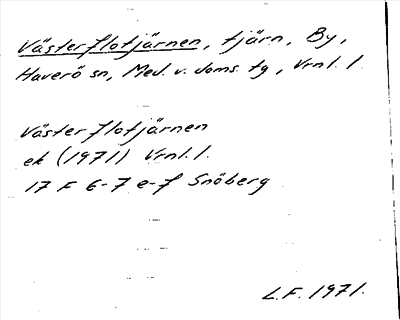 Västerflotjärnen, tjärn, By,
Haverö sn, Med. v. doms. tg, Vrnl. l.
Västerflotjärnen
ek (1971) Vrnl. l.
17 F 6-7 e-f Snöberg
L.F. 1971.